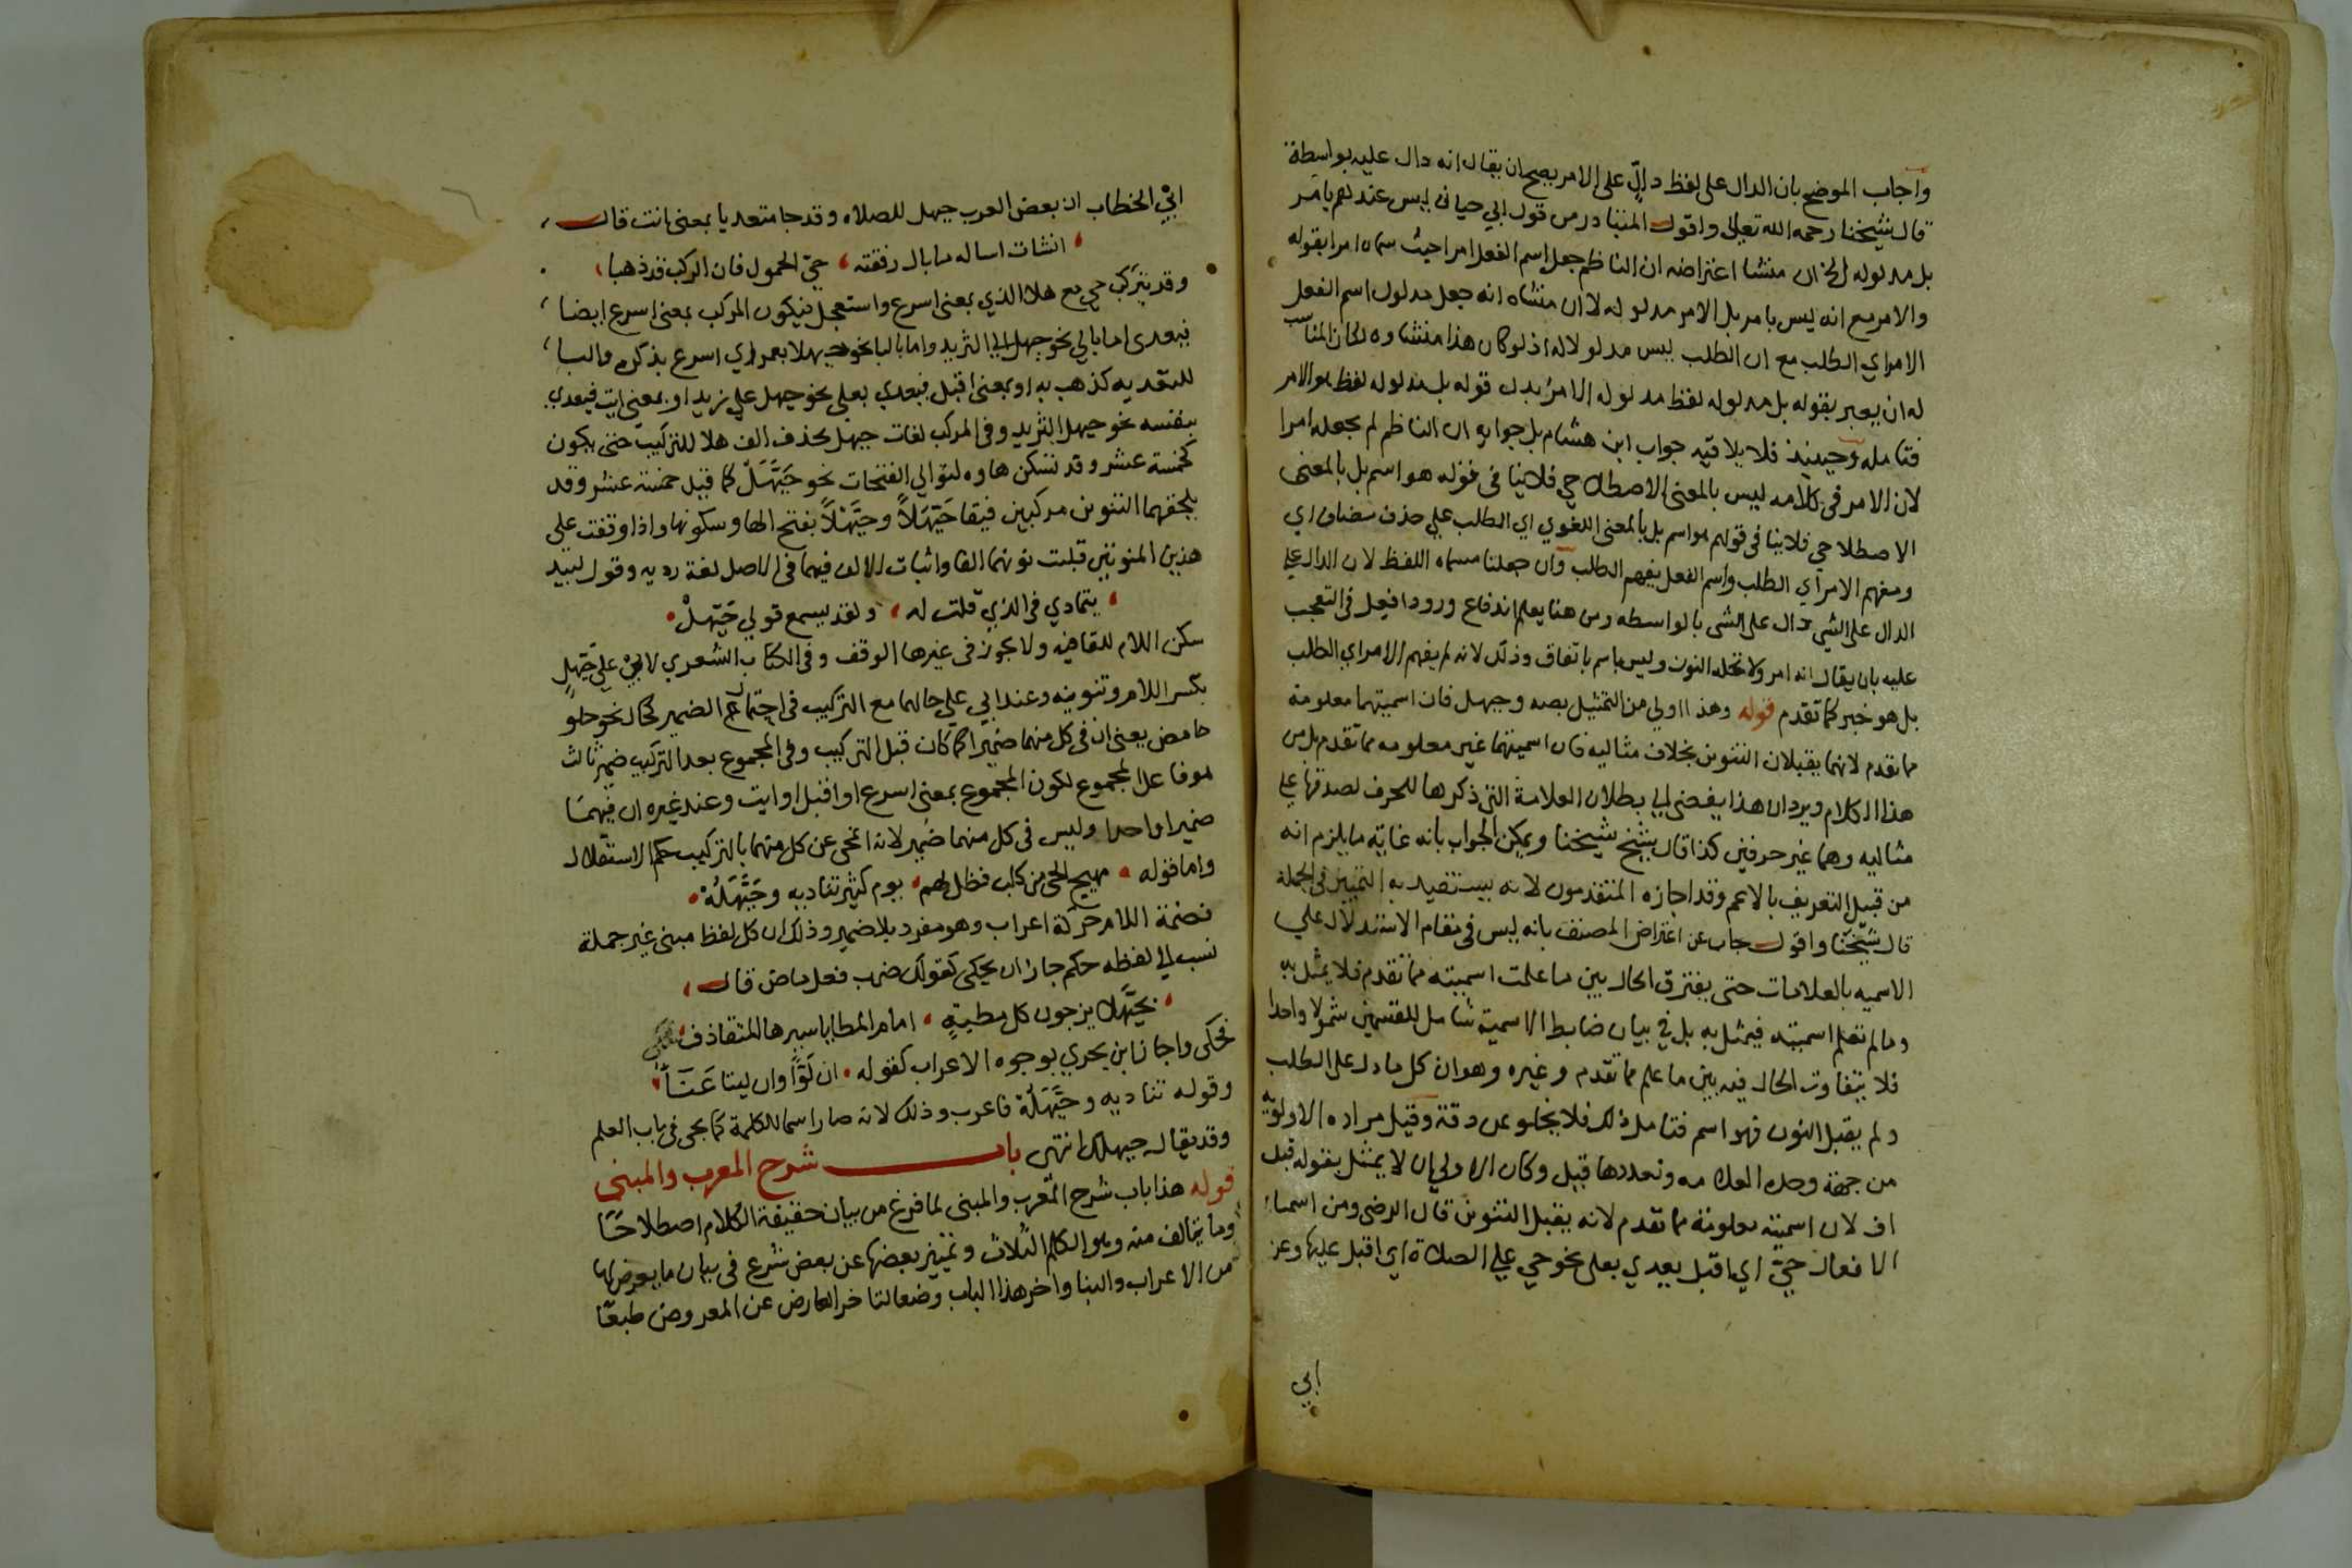 واجاب الموضح بان الدال على لفظ دالّ على الامر يصح ان يقال انه دال عليه بواسطة
قال شيخنا رحمه الله تعالى واقول المتبادر من قول ابي حيان ليس عندهم بامر
بل مدلوله الخ ان منشا اعتراضه ان الناظم جعل اسم الفعل امرا حيث سماه امرا بقوله
والامر مع انه ليس بامر بل الامر مدلوله لا ان منشاه انه جعل مدلول اسم الفعل
الامر اي الطلب مع ان الطلب ليس مدلولا له اذ لو كان هذا منشاوه لكان المناسب
له ان يعبر بقوله بل مدلوله لفظ مدلوله الامر بدل قوله بل مدلوله لفظ هو الامر
فتامله وحينئذ فلا يلاقيه جواب ابن هشام بل جوابه ان الناظم لم يجعله امرا
لان الامر في كلامه ليس بالمعنى الاصطلاحي فلاينافى قوله هو اسم بل بالمعنى
الاصطلاحي فلاينافى قولهم هو اسم بل بالمعنى اللغوي اي الطلب علي حذف مضاف اي
ومفهم الامر اي الطلب واسم الفعل يفهم الطلب وان جعلنا مسماه اللفظ لان الدال علي
الدال على الشي دال على الشى بالواسطه ومن هنا يعلم اندفاع ورود افعل فى التعجب
عليه بان يقال انه امر ولا تحله النون وليس باسم باتفاق وذلك لانه لم يفهم الامر اي الطلب
بل هو خبر كما تقدم قوله وهذا اولي من التمثيل بصه وحيهل فان اسميتهما معلومة
مما تقدم لانهما يقبلان التنوين بخلاف مثاليه فان اسميتهما غير معلومه مما تقدم بل من
هذا الكلام ويرد ان هذا يفضى الي بطلان العلامة التى ذكرها للحرف لصدقها علي
مثاليه وهما غير حرفين كذا قال شيخ شيخنا ويمكن الجواب بانه غايته ما يلزم انه
من قبيل التعريف بالاعم وقد اجازه المتقدمون لانه يستفيد به التمييز فى الجملة
قال شيخنا واقول يجاب عن اعتراض المصنف بانه ليس فى مقام الاستدلال علي
الاسميه بالعلامات حتى يفترق الحال بين ما علمت اسميته مما تقدم فلا يمثل به
وما لم تعلم اسميته فيمثل به بل في بيان ضابط الاسمية شامل للقسمين شمولا واحدا
فلا يتفاوت الحال فيه بين ما علم مما تقدم وغيره وهو ان كل ما دل على الطلب
ولم يقبل النون فهو اسم فتامل ذلك فلا يخلو عن دقة وقيل مراده الاولويه
من جهة وحده العلامه وتعددها قيل وكان الاولي ان لا يمثل بقوله قبل
اف لان اسميته معلومة مما تقدم لانه يقبل التنوين قال الرضى ومن اسماء
الافعال حيّ اي اقبل يعدي بعلى نحو حي علي الصلاة اي اقبل عليها وعن
ابي
ابي الخطاب ان بعض العرب حيهل للصلاه وقد جا متعديا بمعنى ائت قال
انشات اساله ما بال رفقته حيّ الحمول فان الركب قد ذهبا
وقد يتركب حي مع هلا الذي بمعنى اسرع واستعجل فيكون المركب بمعنى اسرع ايضا
فيعدى اما بالي نحو حيهل الي الثريد واما بالبا نحو حيهلا بعمر اي اسرع بذكره والبا
للتعديه كذهب به او بمعنى اقبل فيعدي بعلي نحو حيهل علي زيد او بمعنى ايت فيعدي
بنفسه نحو حيهل الثريد وفى المركب لغات حيهل بحذف الف هلا للتركيب حتى يكون
كخمسة عشر وقد تسكن هاوه لتوالي الفتحات نحو حَيَّهْلَ كما قيل خمسة عشر وقد
يلحقهما التنوين مركبين فيقا حَيَّهَلاً وحَيَّهْلاً بفتح الها وسكونها واذا وقفت علي
هذين المنونين قلبت نونهما الفا واثبات الالف فيهما فى الاصل لغة رديه وقول لبيد
يتمادي فى الذي قلت له ولقد يسمع قولي حَيَّهلْ
سكن اللام للقافيه ولا يجوز فى غيرها الوقف وفى الكتاب الشعري لابي علي حَيَّهلٍ
بكسر اللام وتنوينه وعند ابي علي حالهما مع التركيب فى اجتماع الضمير كحال نحو حلو
حامض يعنى ان فى كل منهما ضميرا كما كان قبل التركيب وفى المجموع بعد التركيب ضمير ثالث
هو فاعل المجموع لكون المجموع بمعنى اسرع او اقبل او ايت وعند غيره ان فيهما
ضميرا واحدا وليس فى كل منهما ضمير لانه انمحى عن كل منهما بالتركيب حكم الاستقلال
واما قوله مهيج الحي من كلب فظل لهم يوم كثير تناديه وحَيَّهَلُهْ
فضمة اللام حركة اعراب وهو مفرد بلا ضمير وذلك ان كل لفظ مبنى غير جملة
نسب الي لفظه حكم جاز ان يحكى كقولك ضرب فعل ماض قال
بحيَّهلا يزجون كل مطيةٍ امام المطايا سيرها المتقاذف
فحكى واجاز ابن يجري بوجوه الاعراب كقوله ان لَوّاً وان ليتا عَنَاً
وقوله تناديه وحَيَّهَلُهْ فاعرب وذلك لانه صار اسما للكلمة كما يجى فى باب العلم
وقد يقال حيهلك انتهى باب شرح المعرب والمبني
قوله هذا باب شرح المعرب والمبنى لما فرغ من بيان حقيقة الكلام اصطلاحًا
وما يتالف منه وهو الكلم الثلاث وتمييز بعضها عن بعض شرع فى بيان ما يعرض لها
من الاعراب والبنا واخر هذا الباب وضعا لتاخر العارض عن المعروض طبعًا